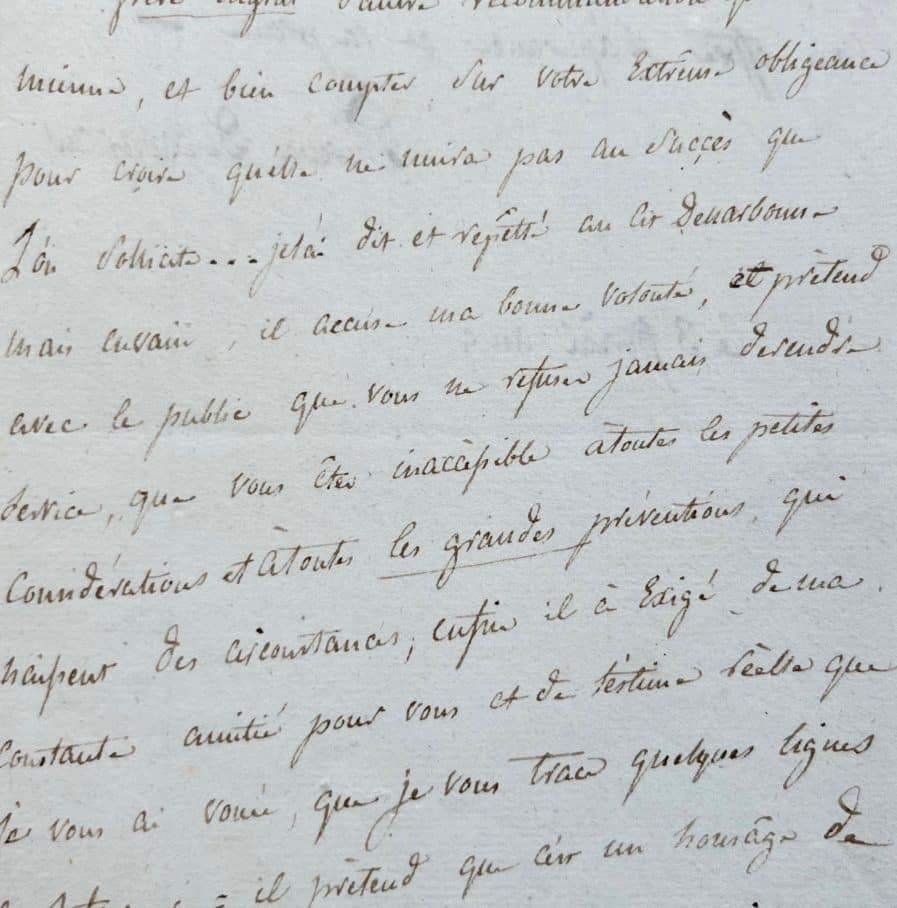 d'autre recommandation
mienne, et bien compter sur votre Extrême obligeance
pour croire qu'éllle ne nuira pas au Succès que
L'ón Sollicite... je l'ai dit et repètté au Cit Denarbonne
mais envain, il accuse ma bonne volonté, et prètend
avec le public que vous ne refusez jamais derendre
Service, que vous êtes inaccèssible àtoutes les petites
Considérations et àtoutes les grandes préventións, qui
naissent des circonstances; enfin il à Exigé dema
Constante amitié pour vous et de l'éstime rèelle que
je vous ai vouée, que je vous trace quelques lignes
il prètend que cést un homâge de